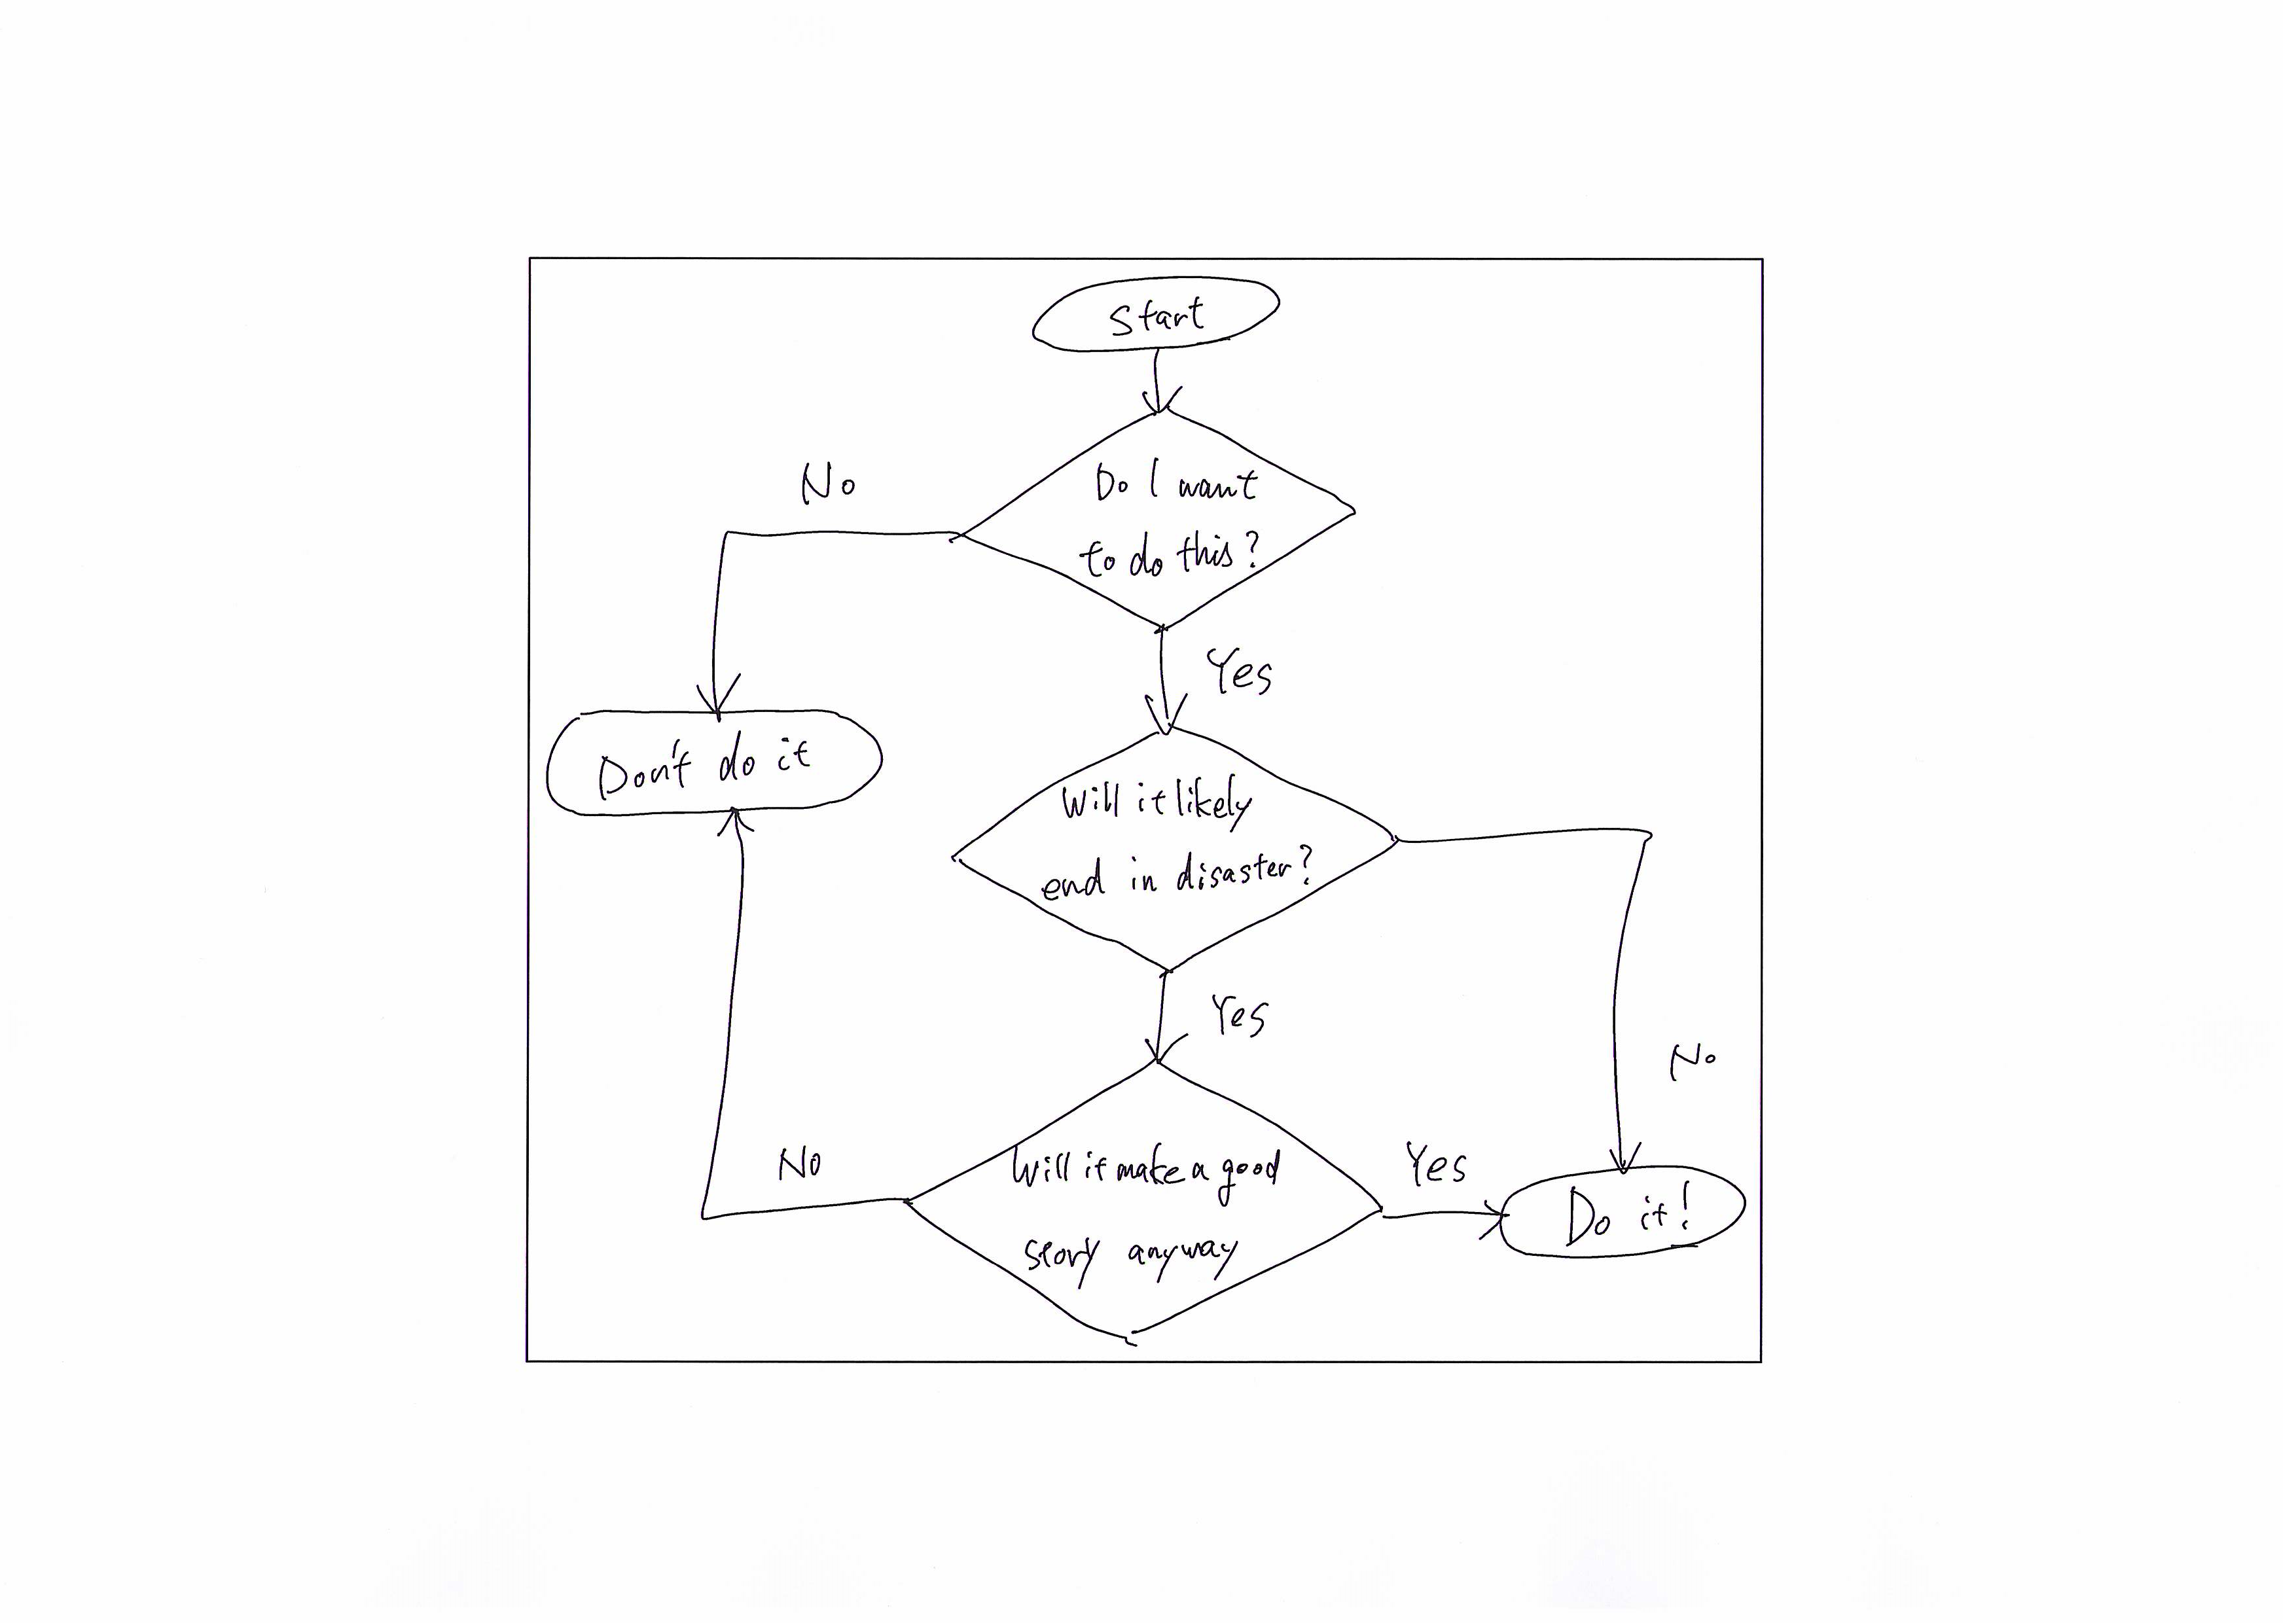 Start
Do I want
to do this?
No
Yes
Don't do it
Will it likely
end in disaster?
Yes
No
Will it make a good
story anyway
No
Yes
Do it!